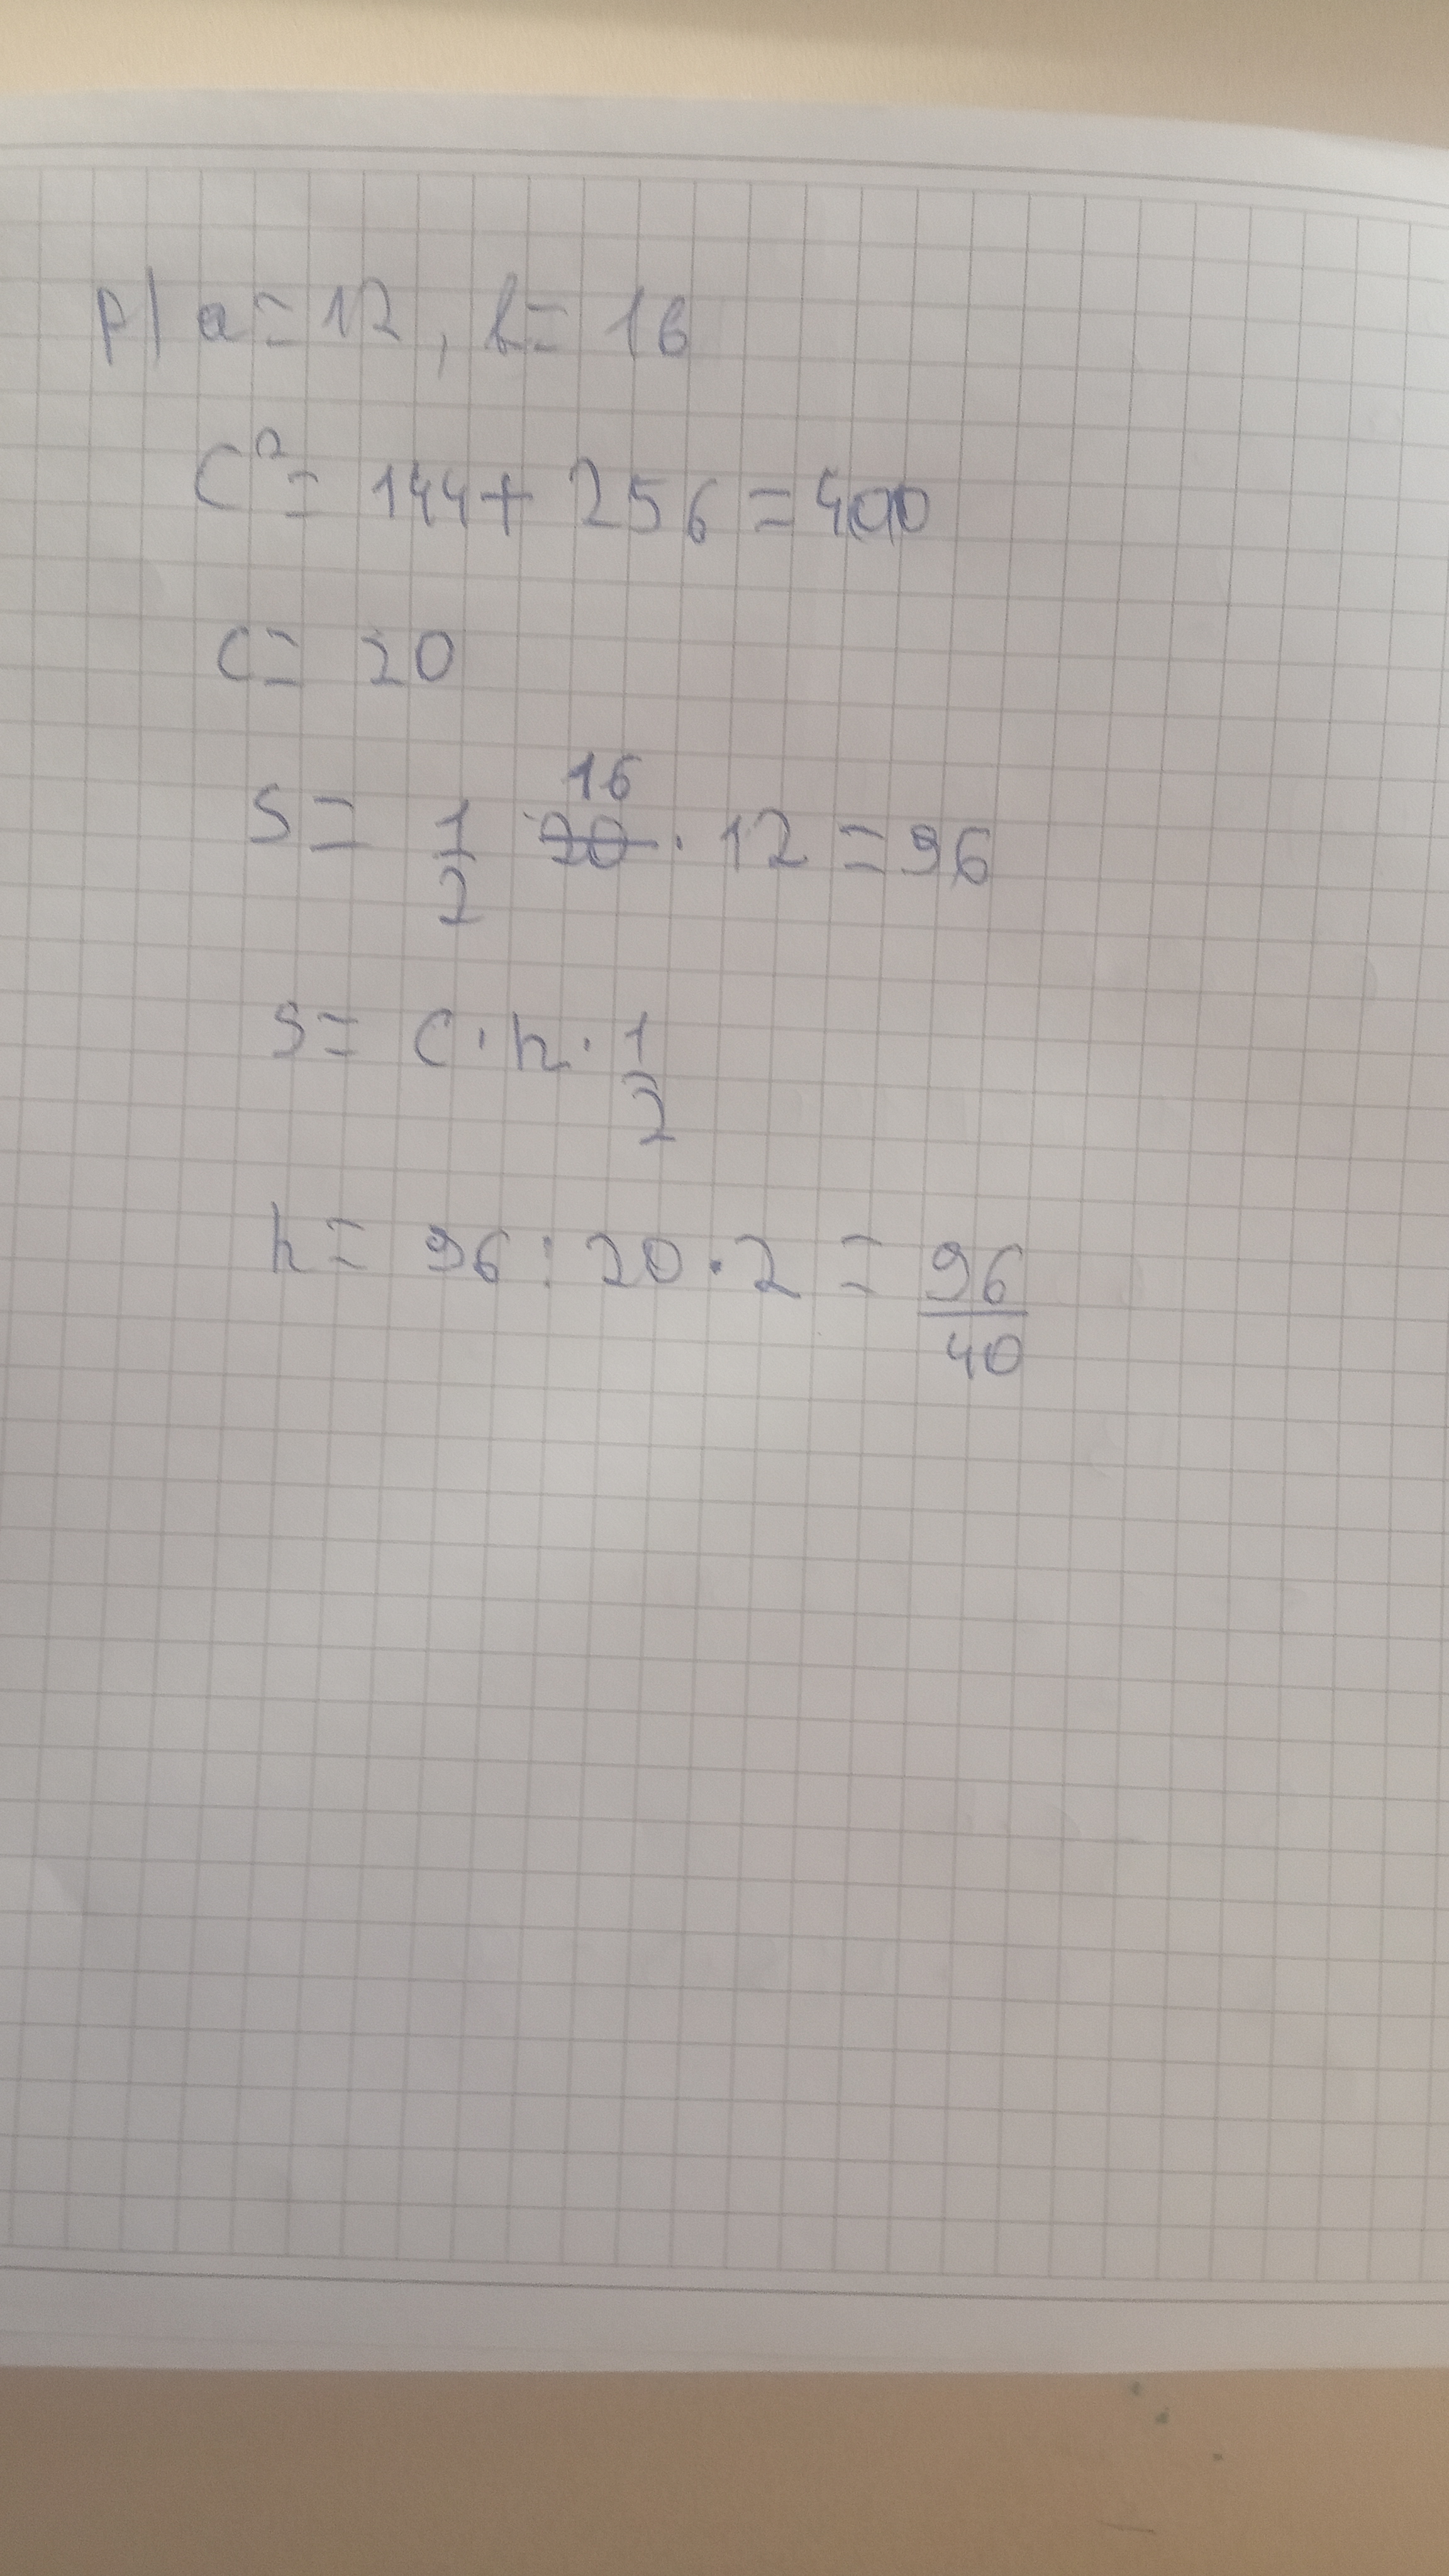 P| a = 12, b = 16
C² = 144 + 256 = 400
C = 20
S = 1/2 ~~20~~ 16 · 12 = 96
S = C · h · 1/2
h = 96 : 20 · 2 = 96/40